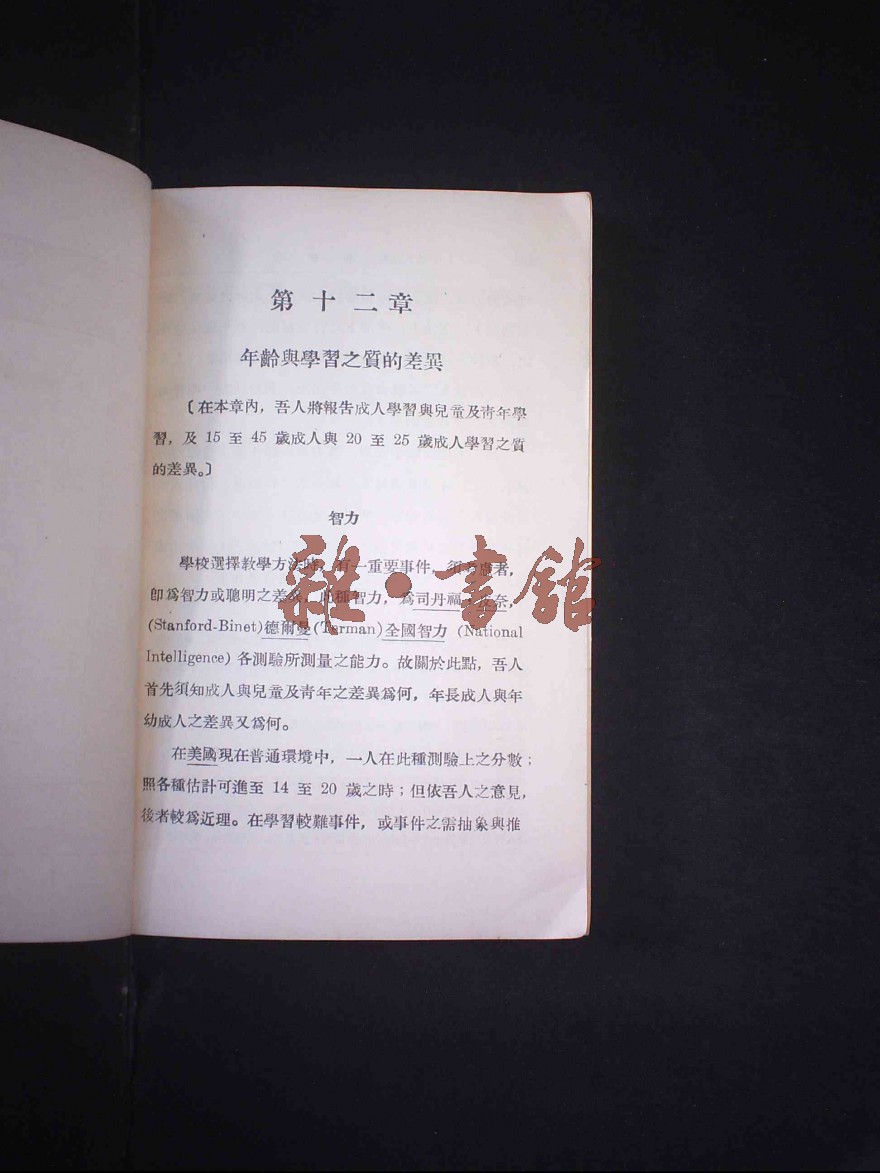 第十二章
年齡與學習之質的差異
〔在本章內，吾人將報告成人學習與兒童及靑年學
習，及 15 至 45 歲成人與 20 至 25 歲成人學習之質
的差異。〕
智力
學校選擇敎學方法時，有一重要事件，須考慮者，
卽爲智力或聰明之差異，此種智力，爲司丹福 奈，
(Stanford-Binet)德爾曼(Terman)全國智力 (National
Intelligence) 各測驗所測量之能力。故關於此點，吾人
首先須知成人與兒童及靑年之差異爲何，年長成人與年
幼成人之差異又爲何。
在美國現在普通環境中，一人在此種測驗上之分數；
照各種估計可進至 14 至 20 歲之時；但依吾人之意見，
後者較爲近理。在學習較難事件，或事件之需抽象與推
雜·書館